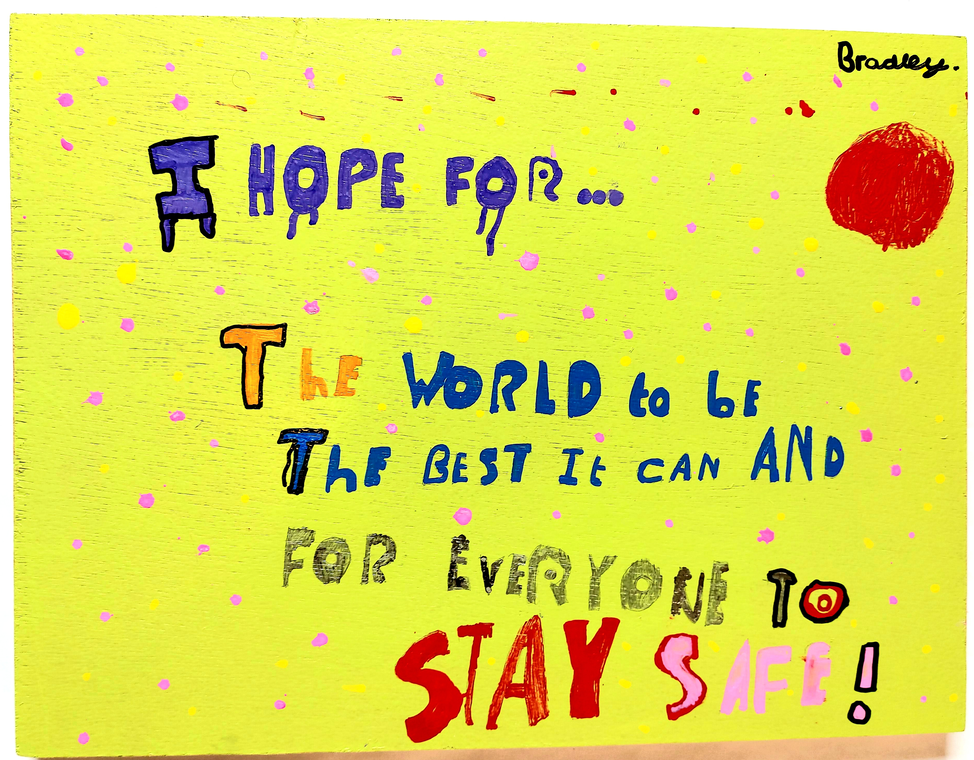 Bradley.
I HOPE FOR...
The WORLD to bE
ThE BEST It CAN AND
FOR EvERYONE TO
STAY SAFE!